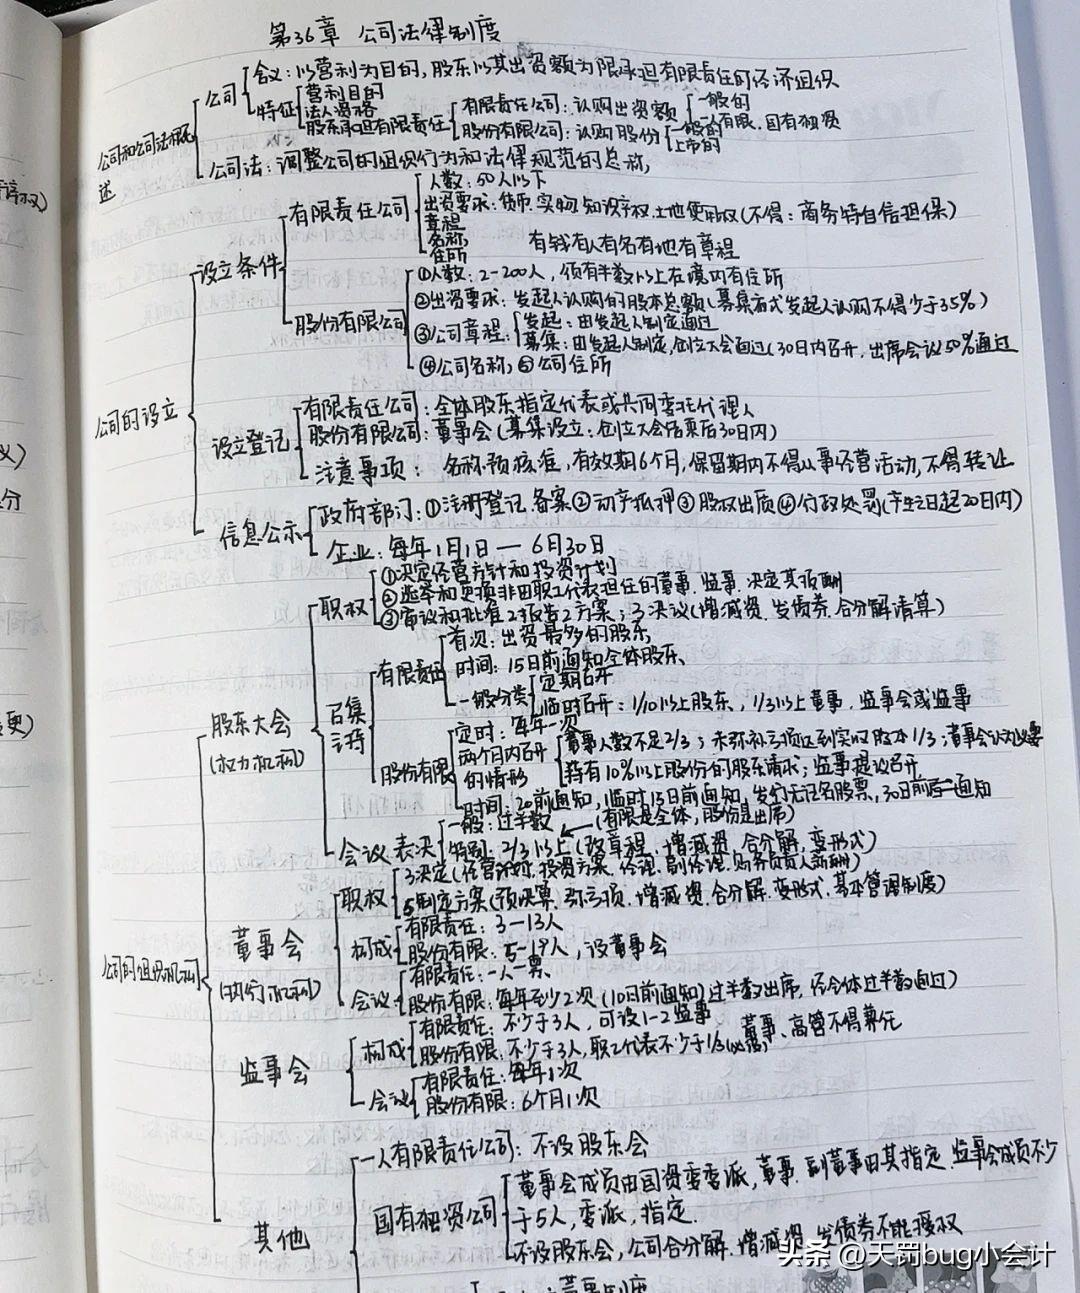 第36章 公司法律制度
公司和公司法概述
公司
含义：以营利为目的，股东以其出资额为限承担有限责任的经济组织
特征
营利目的
法人资格
股东承担有限责任
有限责任公司：认购出资额
一般的
一人有限、国有独资
股份有限公司：认购股份
一般的
上市的
公司法：调整公司的组织行为和法律规范的总称
公司的设立
设立条件
有限责任公司
人数：50人以下
出资要求：货币、实物、知识产权、土地使用权（不得：商务特自信担保）
章程
名称
住所
有钱有人有名有地有章程
股份有限公司
①人数：2-200人，须有半数以上在境内有住所
②出资要求：发起人认购的股本总额（募集方式发起人认购不得少于35%）
③公司章程：
发起：由发起人制定通过
募集：由发起人制定，创立大会通过（30日内召开，出席会议50%通过
④公司名称，⑤公司住所
设立登记
有限责任公司：全体股东指定代表或共同委托代理人
股份有限公司：董事会（募集设立：创立大会结束后30日内）
注意事项：名称预核准，有效期6个月，保留期内不得从事经营活动，不得转让
信息公示
政府部门：①注册登记、备案②动产抵押③股权出质④行政处罚（产生之日起20日内）
企业：每年1月1日—6月30日
公司的组织机构
股东大会
(权力机构)
职权
①决定经营方针和投资计划
②选举和更换非由职工代表担任的董事、监事，决定其报酬
③审议和批准2报告2方案；3决议（增减资、发债券、合分解清算）
召集
主持
有限责任
首次：出资最多的股东
时间：15日前通知全体股东
一般分类
定期召开
临时召开：1/10以上股东，1/3以上董事，监事会或监事
股份有限
定时：每年一次
两个月内召开
的情形
董事人数不足2/3；未弥补亏损达到实收股本1/3；董事会认为必要
持有10%以上股份的股东请求；监事提议召开
时间：20前通知，临时15日前通知，发行无记名股票，30日前通知
会议表决
一般：过半数（有限是全体，股份是出席）
特别：2/3以上（改章程、增减资、合分解、变形式）
董事会
(执行机构)
职权
3决定（经营计划、投资方案、经理、副经理、财务负责人薪酬）
5制定方案（预决算、弥亏损、增减资、合分解、变形式、基本管理制度）
构成
有限责任：3—13人
股份有限：5—19人，设董事会
会议
有限责任：一人一票
股份有限：每年至少2次（10日前通知）过半数出席，经全体过半数通过）
监事会
构成
有限责任：不少于3人，可设1-2监事
股份有限：不少于3人，职工代表不少于1/3
董事、高管不得兼任
会议
有限责任：每年1次
股份有限：6个月1次
其他
一人有限责任公司：不设股东会
国有独资公司
董事会成员由国资委委派，董事、副董事由其指定、监事会成员不少
于5人，委派，指定
不设股东会，公司合分解、增减资、发债券不能授权
头条 @天罚bug小会计